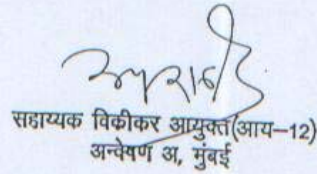 सहाय्यक विक्रीकर आयुक्त(आय-12)
अन्वेषण अ, मुंबई